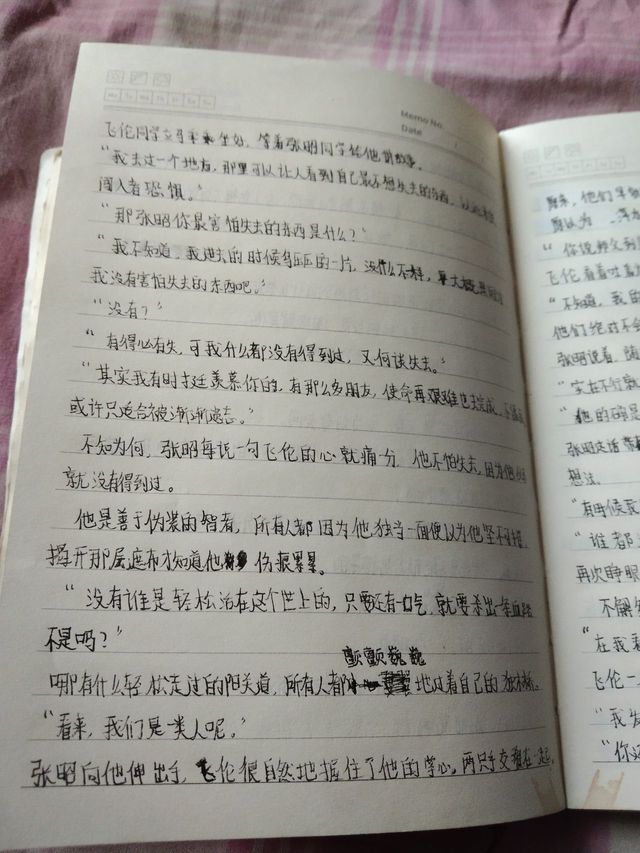 Memo No.
Date
Mo Tu We Th Fr Sa Su
飞伦同学立马乖乖坐好，等着张昭同学给他讲故事。
“我去过一个地方，那里可以让人看到自己最不想失去的东西，以此来让
闯入者恐惧。”
“那张昭你最害怕失去的东西是什么？”
“我不知道，我进去的时候的一片，没什么不样，大概是因为
我没有害怕失去的东西吧。”
“没有？”
“有得必有失，可我什么都没有得到过，又何谈失去。”
“其实我有时挺羡慕你的，有那么多朋友，使命再艰难也去完成，不像我
或许只适合被渐渐遗忘。”
不知为何，张昭每说一句飞伦的心就痛一分，他不怕失去，因为他
就没有得到过。
他是善于伪装的智者，所有人都因为他独当一面便以为他坚不可摧，
揭开那层遮布才知道他伤痕累累。
“没有谁是轻松活在这个世上的，只要还有一口气，就要杀出一条血路
不是吗？”
颤颤巍巍
哪有什么轻松走过的阳关道，所有人都地过着自己的独木桥。
“看来，我们是一类人呢。”
张昭向他伸出手，飞伦很自然地握住了他的掌心，两只手交握在一起，
原来，他们早
原以为
“你说养父
飞伦看着吐
“不知道，我
他们绝对不会
张昭说着，随
“实在不行就
“他的确是
张昭这话带
想法。
“有时候我
“谁都
再次睁眼
不解
“在我看
飞伦一
“我发
“你还